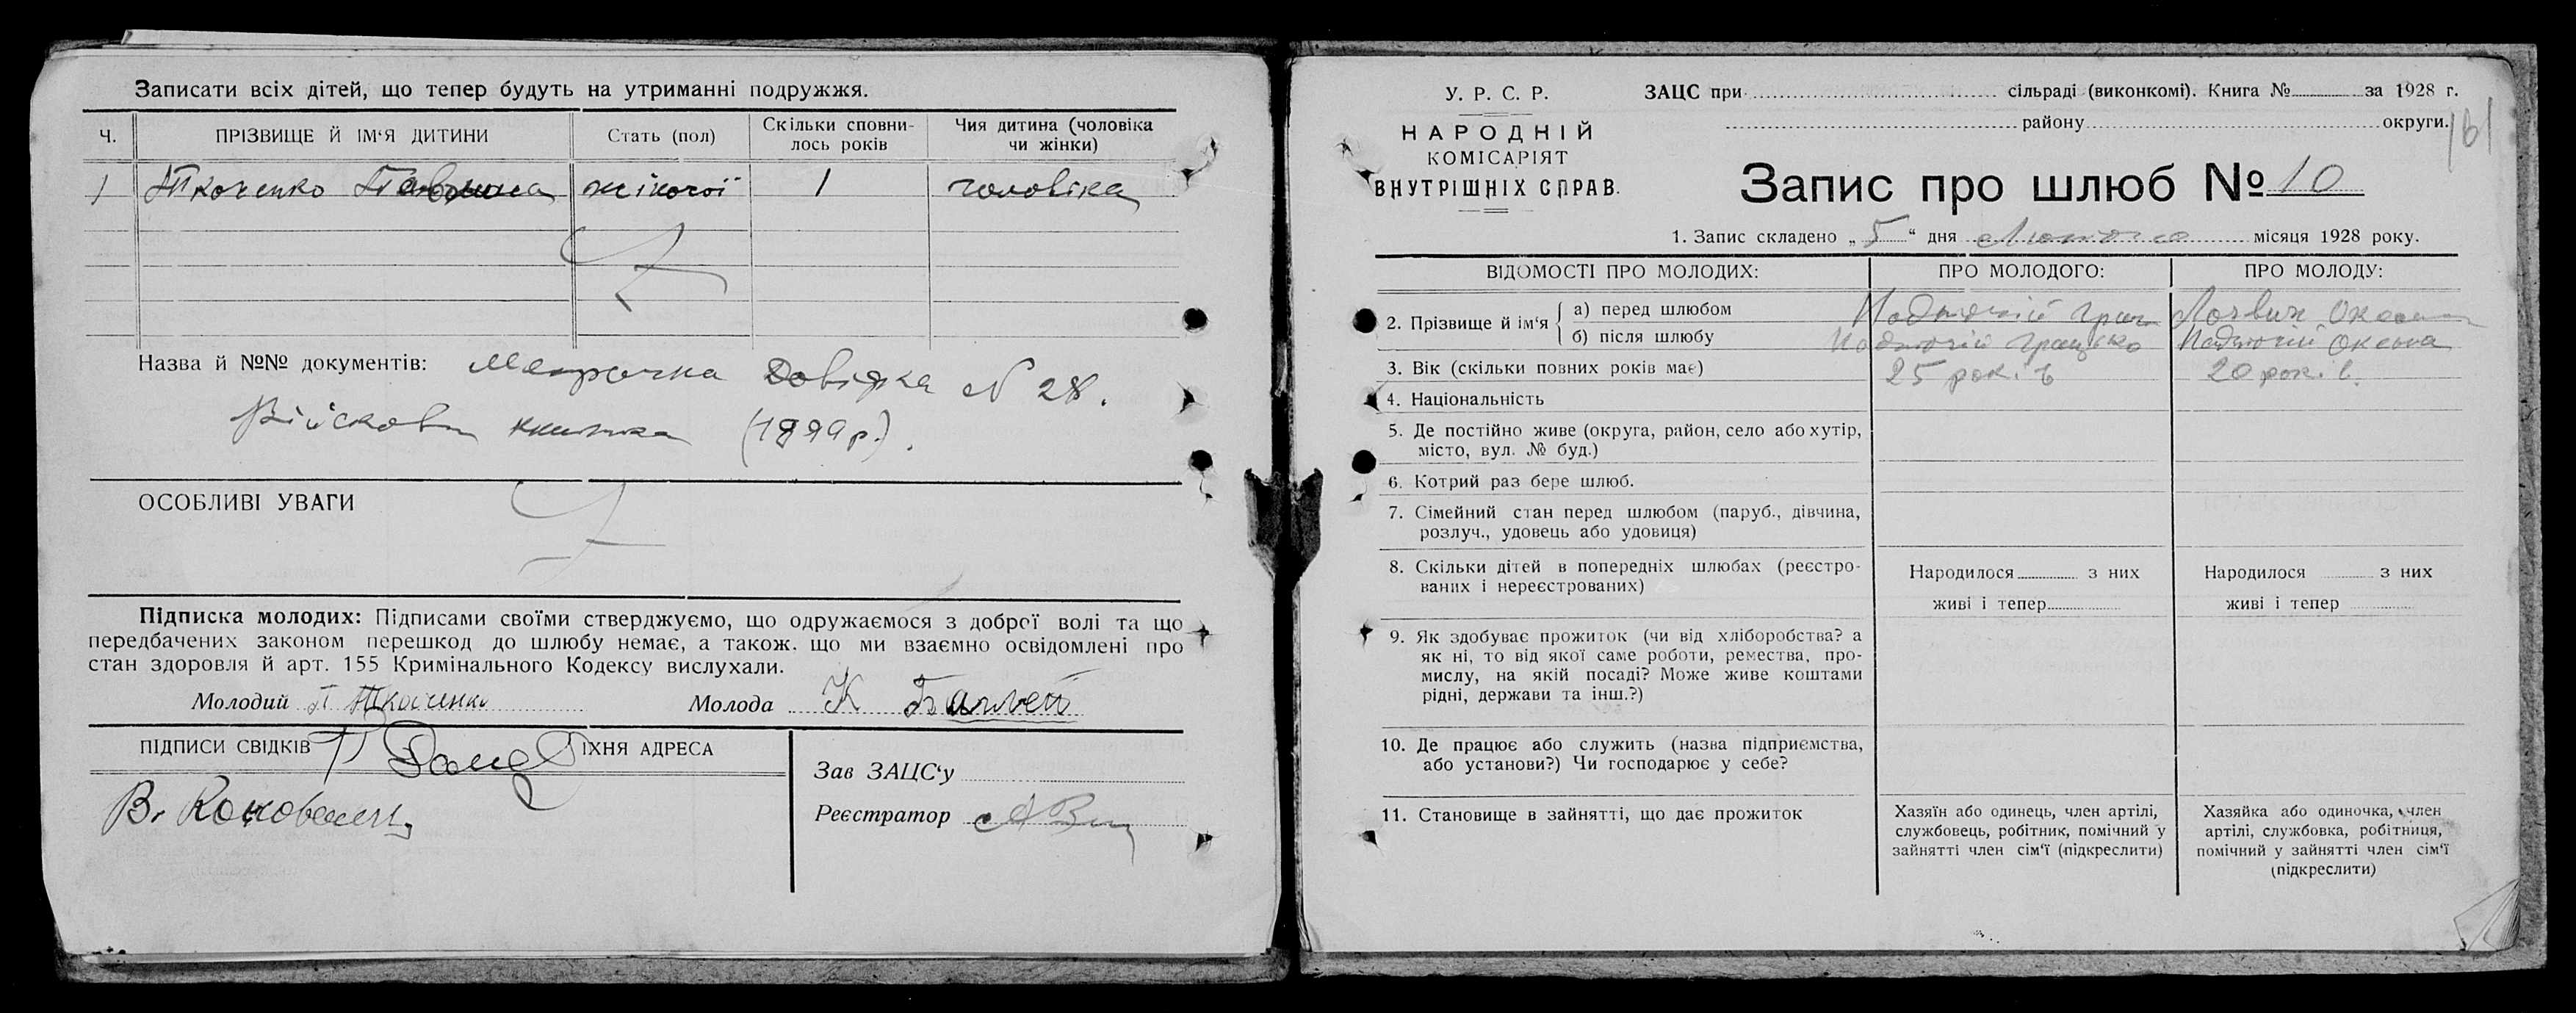 Записати всіх дітей, що тепер будуть на утриманні подружжя.
Ч. ПРІЗВИЩЕ Й ІМ‘Я ДИТИНИ Стать (пол) Скільки сповни- Чия дитина (чоловіка
лось років чи жінки)
1 Ткаченко жіночої 1 чоловіка
Назва й №№ документів: Метрична Довідка № 28.
Військова книжка (1899 р.).
ОСОБЛИВІ УВАГИ
Підписка молодих: Підписами своїми стверджуємо, що одружаємося з доброї волі та що
передбачених законом перешкод до шлюбу немає, а також. що ми взаємно освідомлені про
стан здоровля й арт. 155 Кримінального Кодексу вислухали.
Молодий П Ткаченко Молода К
ПІДПИСИ СВІДКІВ ЇХНЯ АДРЕСА
Зав ЗАЦС‘у
В. Коновалец
Реєстратор
У. Р. С. Р.
НАРОДНІЙ
КОМІСАРІЯТ
ВНУТРІШНІХ СПРАВ.
ЗАЦС при сільраді (виконкомі). Книга № за 1928 г.
району округи.
161
Запис про шлюб № 10
1. Запис складено „5“ дня Лютого місяця 1928 року.
ВІДОМОСТІ ПРО МОЛОДИХ: ПРО МОЛОДОГО: ПРО МОЛОДУ:
2. Прізвище й ім‘я
а) перед шлюбом Оксана
б) після шлюбу Грицько Оксана
3. Вік (скільки повних років має) 25 рок. в 20 рок. в.
4. Національність
5. Де постійно живе (округа, район, село або хутір,
місто, вул. № буд.)
6. Котрий раз бере шлюб.
7. Сімейний стан перед шлюбом (паруб., дівчина,
розлуч., удовець або удовиця)
8. Скільки дітей в попередніх шлюбах (реєстро- Народилося з них Народилося з них
ваних і нереєстрованих) живі і тепер живі і тепер
9. Як здобуває прожиток (чи від хліборобства? а
як ні, то від якої саме роботи, ремества, про-
мислу, на якій посаді? Може живе коштами
рідні, держави та інш.?)
10. Де працює або служить (назва підприємства,
або установи?) Чи господарює у себе?
11. Становище в зайнятті, що дає прожиток
Хазяїн або одинець, член артілі,
службовець, робітник, помічний у
зайнятті член сім‘ї (підкреслити)
Хазяйка або одиночка, член
артілі, службовка, робітниця,
помічний у зайнятті член сім‘ї
(підкреслити)